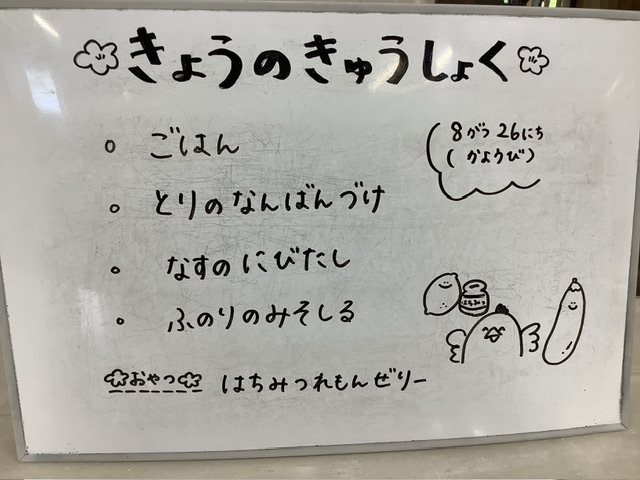 きょうのきゅうしょく
8がつ26にち
(かようび)
ごはん
とりのなんばんづけ
なすのにびたし
ふのりのみそしる
おやつ はちみつれもんぜりー
はちみつ